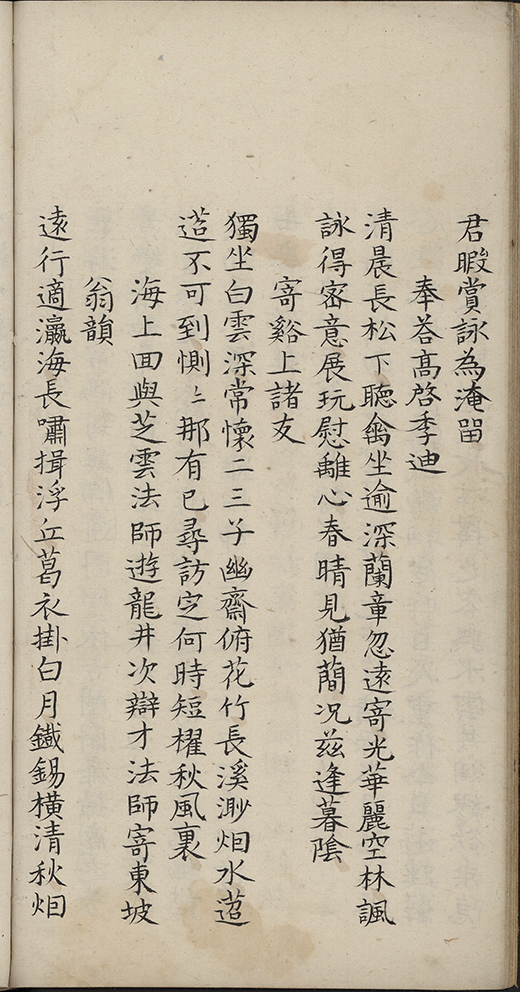 君暇賞詠為淹畱
奉荅髙啓季迪
清晨長松下聽禽坐逾深蘭章忽遠寄光華麗空林諷
詠得宻意展玩慰離心春晴見猶蕳况兹逢暮陰
寄谿上諸友
獨坐白雲深常懷二三子幽齋俯花竹長溪渺烟水蕸
蕸不可到惻〻那有已尋訪定何時短櫂秋風裏
海上回與芝雲法師遊龍井次辯才法師寄東坡
翁韻
遠行適瀛海長嘯揖浮丘葛衣掛白月鐵錫橫清秋烟